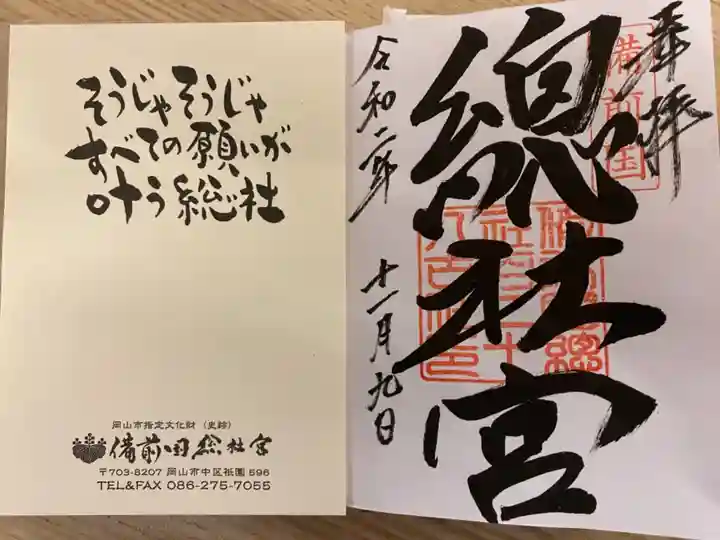 そうじゃそうじゃ
すべての願いが
叶う総社
岡山市指定文化財（史跡）
備前国総社宮
〒703-8207 岡山市中区祇園 596
TEL&FAX 086-275-7055
奉拝
備前国
總社宮
令和二年
十一月九日